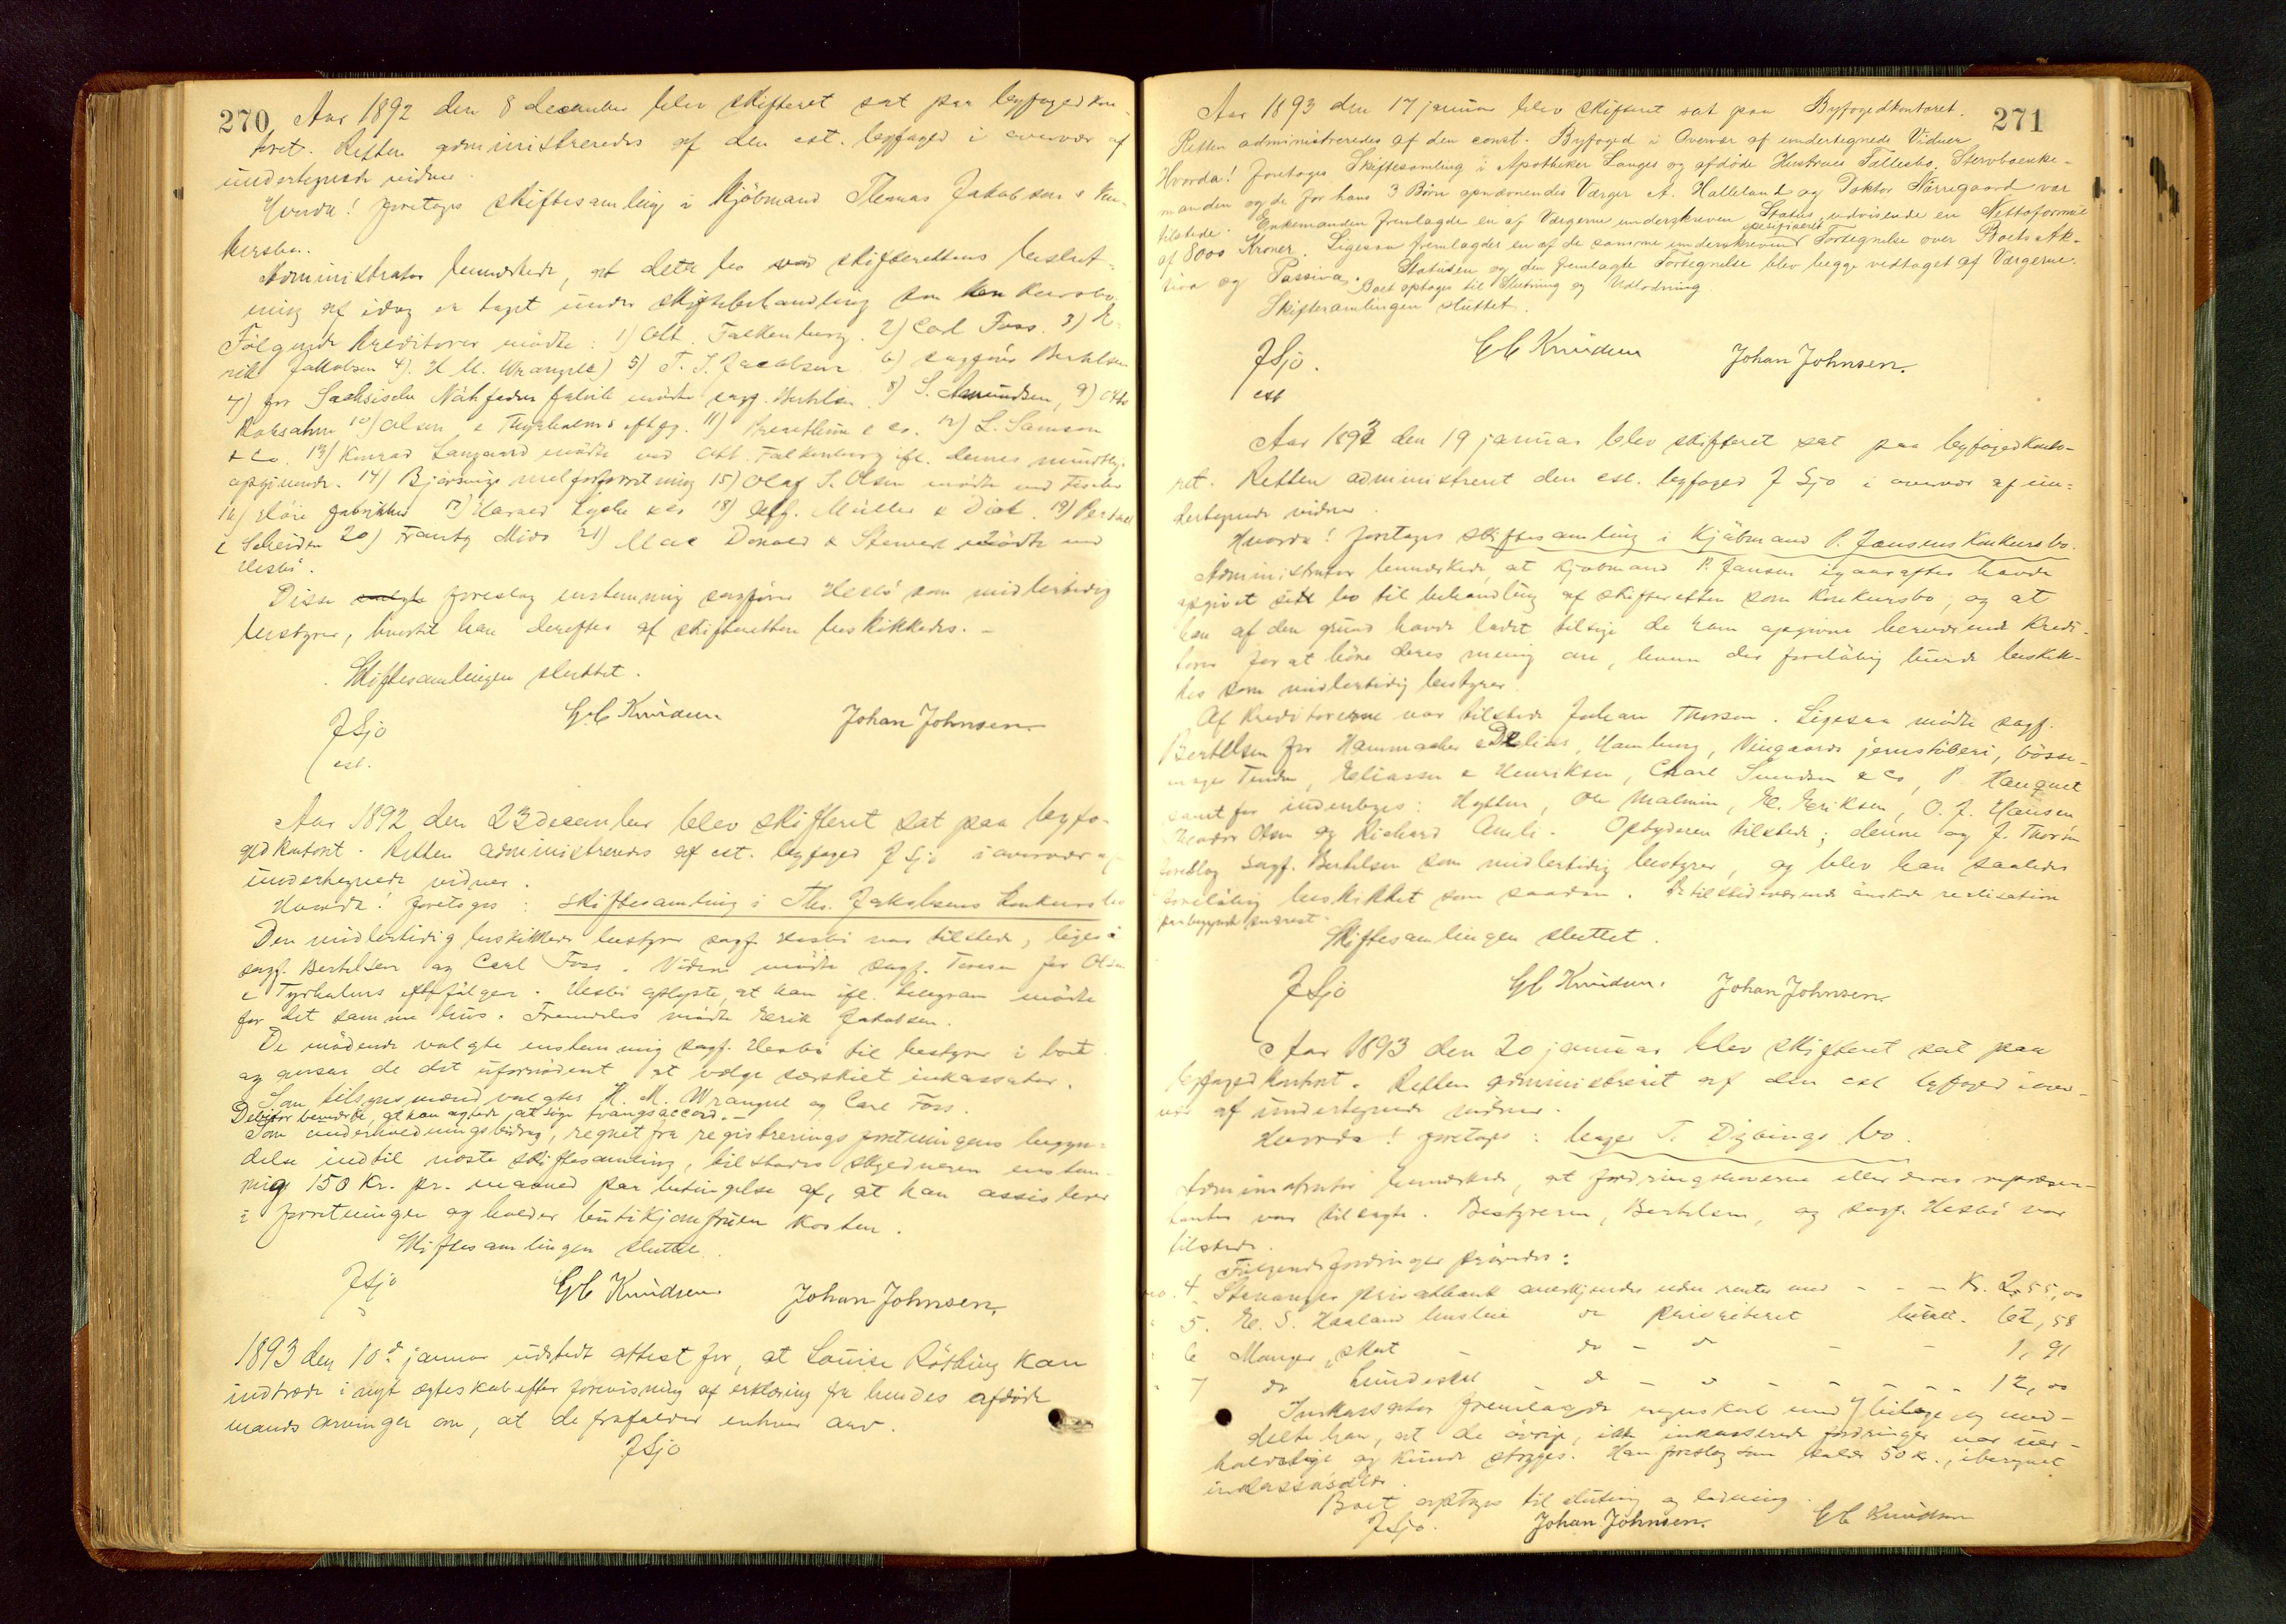 270
Aar 1892 den 8 december blev skifteret sat paa byfogedkon-
toret. Retten administreredes af den cst. byfoged i overvær af
undertegnede vidner.
Hvorda! foretoges skiftesamling i Kjöbmand Thomas Jakobsens kon-
kursbo.
Administrator bemærkede, at dette bo ved skifterettens beslut-
ning af idag er taget under skiftebehandling som konkursbo.
Følgende kreditorer mødte: 1) Alb. Falkenburg. 2) Carl Foss. 3) E-
rik Jakobsen 4) H. M. Wrangell 5) T. S. Jacobsen 6) sagfører Bertelsen
7) for Sachsische Nähfaden fabrik mødte sagf. Bertelsen 8) S. Amundsen, 9) Otto
Roksahm 10) Olsen & Thyrholms eftflg. 11) & co. 12) L. Samson
& Co. 13) Konrad Langaard mødte ved Alb. Falkenburg ifl. dennes mundtlige
opgivende. 14) Bjørsvigs melforretning 15) Olaf S. Olsen mødte ved
16) fabrikker 17) Harald Lyche & co 18) Müller & 19)
& Scheiden 20) Frantz Mios 21) Mac Donald & Steward mødte ved
Hesbö.
Disse foreslog enstemmig sagfører Hesbö som midlertidig
bestyrer, hvortil han derefter af skifteretten beskikkedes. -
Skiftesamlingen sluttet.
J Sjo
cst.
G C Knudsen
Johan Johnsen
Aar 1892 den 23 december blev skifteret sat paa byfo-
gedkontoret. Retten administreredes af cst. byfoged J Sjo i overvær af
undertegnede vidner.
Hvorda! foretoges: skiftesamling i Ths. Jakobsens konkursbo
Den midlertidig beskikkede bestyrer sagf. Hesbö var tilstede, ligesaa
sagf. Bertelsen og Carl Foss. Videre mødte sagf. for Olsen
& Tyrholms eftfølger. Hesbö oplyste, at han ifl. telegram mødte
for det samme hus. Fremdeles mødte Erik Jakobsen.
De mødende valgte enstemmig sagf. Hesbö til bestyrer i boet
og ansaa de det ufornødent at vælge særskilt inkassator.
Som tilsynsmænd valgtes H. M. Wrangell og Carl Foss.
Debitor bemærkte, at han agtede at søge tvangsaccord. -
Som underholdningsbidrag, regnet fra registreringsforretningens begyn-
delse indtil næste skiftesamling, tilstodes skyldneren enstem-
mig 150 Kr. pr. maaned paa betingelse af, at han assisterer
i forretningen og holder butikjomfruen kosten.
Skiftesamlingen sluttet.
J Sjo
G C Knudsen
Johan Johnsen.
1893 den 10de januar udstedt attest for, at Louise Röthing kan
indtræde i nyt ægteskab efter forevisning af erklæring fra hendes afdøde
mands arvinger om, at de frafalder enhver arv.
J Sjo
271
Aar 1893 den 17 januar blev skifteret sat paa Byfogedkontoret.
Retten administreredes af den const. Byfoged i Overvær af undertegnede Vidner
Hvorda! foretoges Skiftesamling i Apotheker Langes og afdøde Hustrues Fællesbo. Stervboenke-
manden og de for hans 3 Børn opnævnendes Værger A. Halleland og Doktor Nörregaard var
tilstede. Enkemanden fremlagde en af Værgerne underskreven Status, udvisende en Nettoformue
specificeret
af 8000 Kroner. Ligesaa fremlagdes en af de samme underskreven Fortegnelse over Boets Ak-
tiva og Passiva. Statusen og den fremlagte Fortegnelse blev begge vedtaget af Værgerne.
Boet optoges til Slutning og Udlodning.
Skiftesamlingen sluttet.
J Sjo.
cst
G C Knudsen
Johan Johnsen.
Aar 1893 den 19 januar blev skifteret sat paa byfogedkonto-
ret. Retten administreret den cst. byfoged J Sjo i overvær af un-
dertegnede vidner.
Hvorda! foretoges skiftesamling i Kjöbmand P. Jansens Konkursbo.
Administrator bemærkede, at Kjöbmand P. Jansen igaaraftes havde
opgivet sit bo til behandling af skifteretten som konkursbo, og at
han af den grund havde ladet tilsige de ham opgivne herværende kredi-
torer for at høre deres mening om, hvem der foreløbig burde beskik-
kes som midlertidig bestyrer.
Af kreditorerne var tilstede Johan Thorsen. Ligesaa mødte sagf.
Bertelsen for Hammacher & Delius, Hamburg, Vingaards jernstöberi, bösse-
mager Tenden, Eliassen & Henriksen, Charl Svendsen & Co, P. Hauquet
samt for indenbyes: Hytten, Ole Malmin, E. Eriksen, O. J. Hansen
Theodor Olsen og Richard Amli. Opbyderen tilstede; denne og J. Thorsen
foreslog sagf. Bertelsen som midlertidig bestyrer, og blev han saaledes
foreløbig beskikket som saadan. De tilstedeværende ønskede realisation
paabegyndt snarest.
Skiftesamlingen sluttet.
J Sjo
G C Knudsen.
Johan Johnsen
Aar 1893 den 20 januar blev skifteret sat paa
byfogedkontoret. Retten administreret af den cst byfoged i over-
vær af undertegnede vidner.
Hvorda! foretoges: bager T. Dybings bo.
Administrator bemærkede, at fordringshaverne eller deres repræsen-
tanter var tilsagte. Bestyreren, Bertelsen, og sagf. Hesbö var
tilstede.
Følgende fordringer prøvedes:
No. 4 Stavanger privatbank anerkjendes uden renter med - - - Kr. 255,00
5. E. S. Haaland husleie do prioriteret 62,58
6 skat - do - do - - 1,91
7 do hundeskat do - do - - - - 12,00
Inkassator fremlagde regnskab med 7 bilage og med-
delte han, at de øvrige, ikke inkasserede fordringer var uer-
holdelige og kunde stryges. Han foreslog som salær 50 kr., iberegnet
inkassosalær.
Boet optoges til slutning og lodning.
J Sjo.
Johan Johnsen.
G C Knudsen